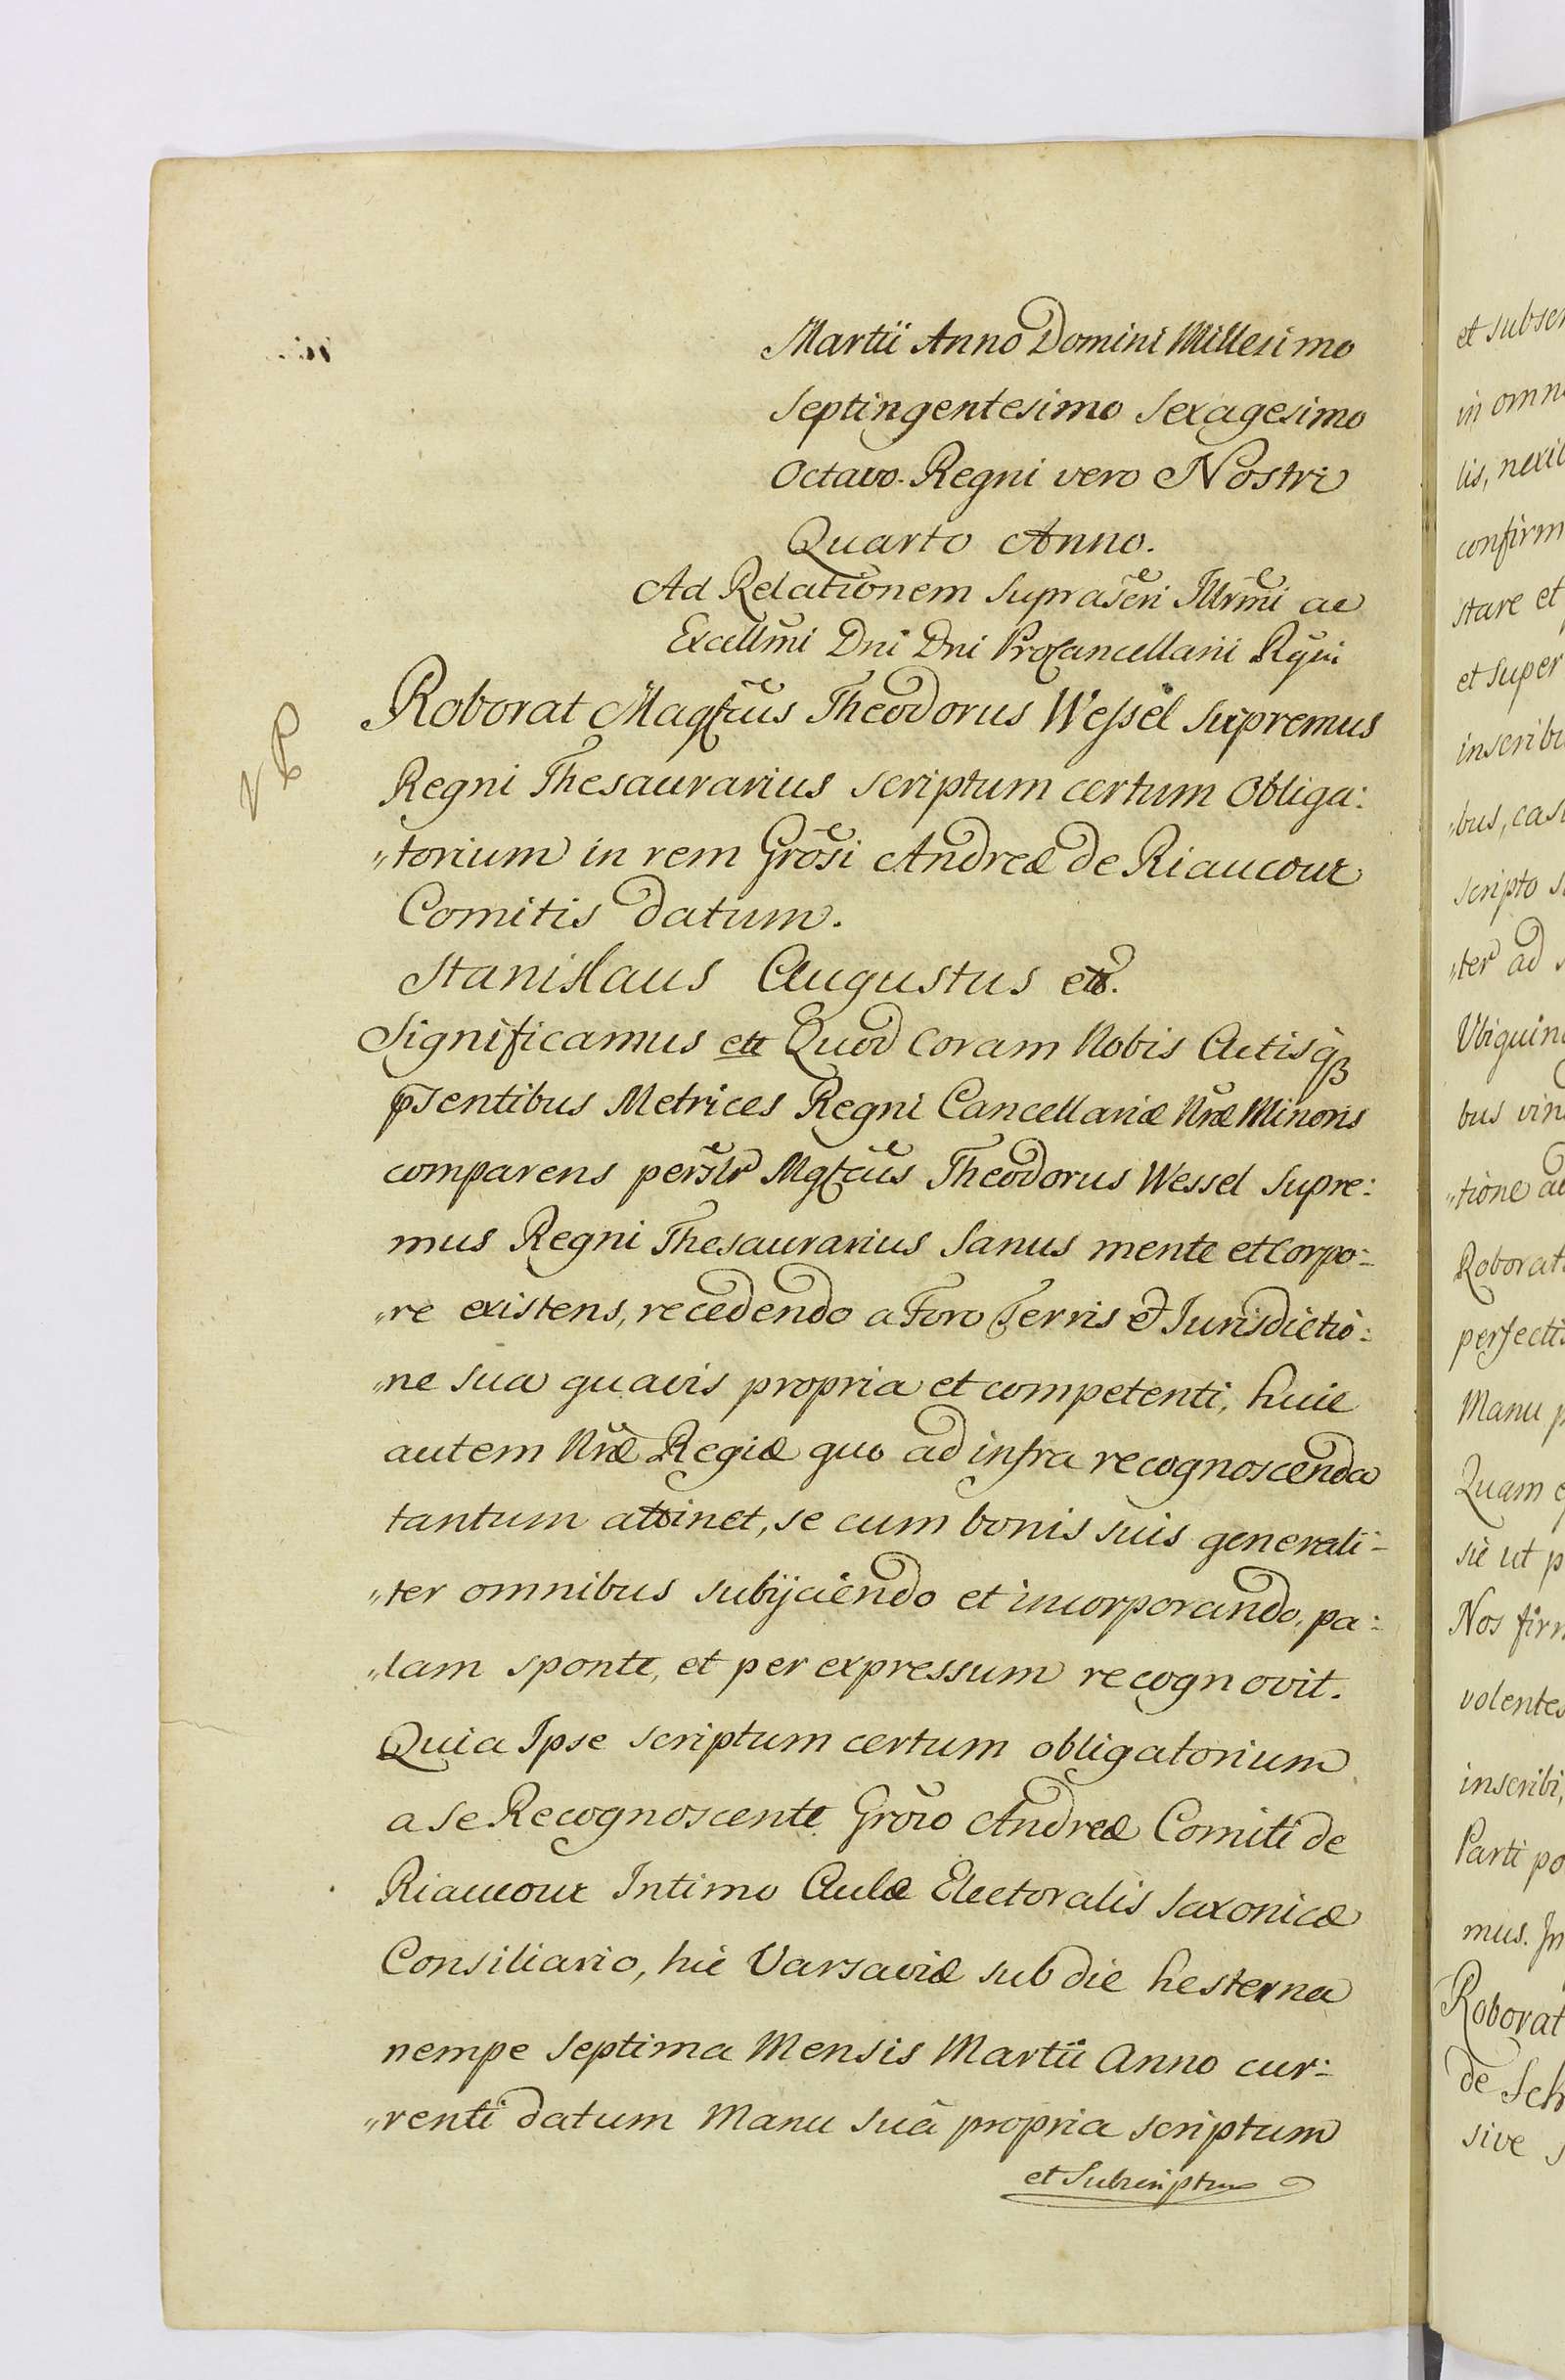 Martii Anno Domini Millesimo
Septingentesimo Sexagesimo
Octavo. Regni vero Nostri
Quarto Anno.
Ad Relationem Suprascri Illrmi ac
Excellmi Dni Dni ProCancellarii Rgni
VP
Roborat Magfcus Theodorus Wessel Supremus
Regni Thesaurarius Scriptum certum Obliga:
„torium in rem Grosi Andreæ de Riaucour
Comitis datum.
Stanislaus Augustus ett.
Significamus ett Quod Coram Nobis Actisqꝫ
pSentibus Metrices Regni Cancellariæ Nræ Minoris
comparens persslr Mgfcus Theodorus Wessel Supre:
mus Regni Thesaurarius Sanus mente et Corpo:
„re existens, recedendo a Foro Terris et Jurisdictio:
„ne sua quavis propria et competenti, huic
autem Nræ Regiæ quo ad infra recognoscenda
tantum attinet, se cum bonis suis generali-
„ter omnibus subijciendo et incorporando, pa:
„lam sponte, et per expressum recognovit.
Quia Ipse Scriptum certum obligatorium
a Se Recognoscente Groso Andreæ Comiti de
Riaucour Intimo Aulæ Electoralis Saxonicæ
Consiliario, hic Varsaviæ sub die hesterna
nempe Septima Mensis Martii Anno cur:
„renti datum Manu Suâ propria scriptum
et Subscriptum
et subscr
in omn
lis, nexi
confirm
stare et
et super
inscribi
„bus, cas
scripto s
„ter ad
Ubiquin
bus vin
„tione
Roborat
perfecti
Manu p
Quam
sic ut p
Nos firm
volentes
inscribi,
Parti po
mus. In
Roborat
de Sch
sive